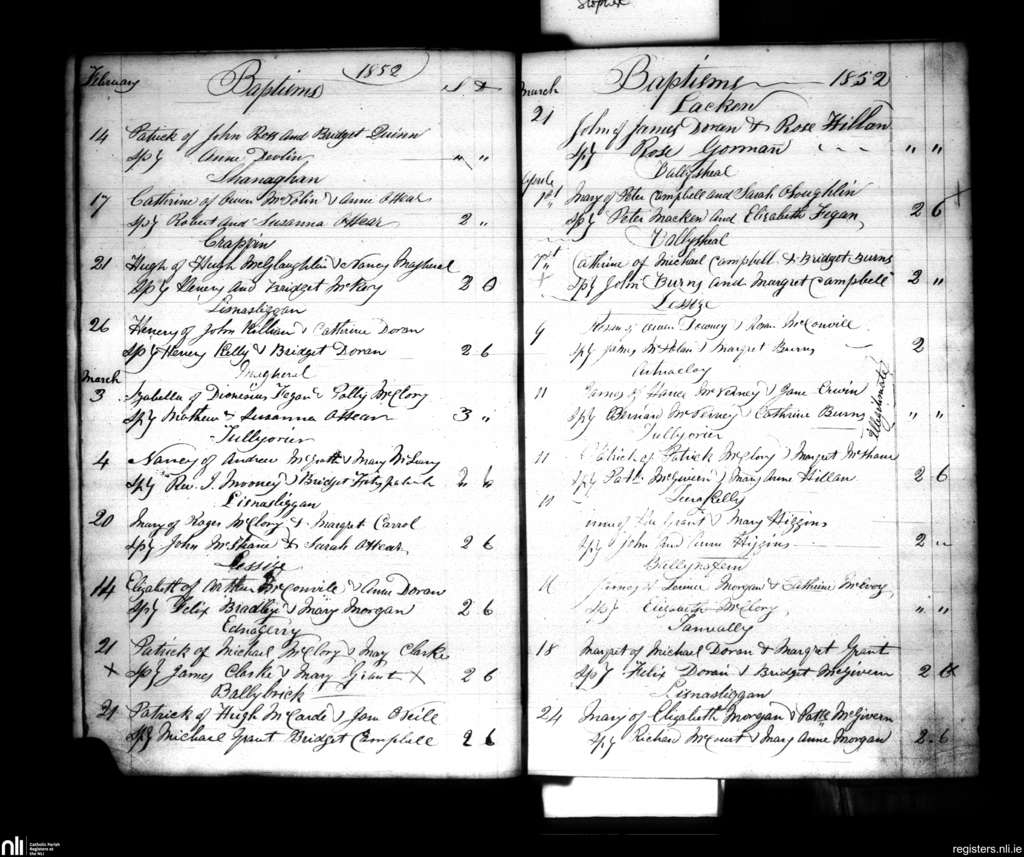 Stophel
February Baptisms 1852
14 Patrick of John Ross and Bridget Quinn
Sp of Anne Devlin " "
Shanaghan
17 Cathrine of Owen McPolin & Anne O'Hear
Sp of Robert and Susanna O'Hear 2 "
Crappin
21 Hugh of Hugh McGlaughlin & Nancy Magheral
Sp of Henery and Bridget McKey 2 0
Lisnasliggan
26 Henery of John Killian & Cathrine Doran
Sp of Henery Kelly & Bridget Doran 2 6
Magheral
March
3 Izabella of Dionisius Fegan & Polly McClory
Sp of Mathew & Susanna O'Hear 3 "
Tullyorier
4 Nancy of Andrew McGrath & Mary McLeary
Sp of Rev. J. Mooney & Bridget Fitzpatrick 2 6
Lisnasliggan
20 Mary of Roger McClory & Margret Carrol
Sp of John McShane & Sarah O'Hear 2 6
Lessize
14 Elizabeth of Arthur McConville & Ann Doran
Sp of Felix Bradley & Mary Morgan 2 6
Ednagerry
21 Patrick of Michael McClory & May Clarke
X Sp of James Clarke & Mary Grant X 2 6
Ballybrick
21 Patrick of Hugh McCardle & Jane O'Neill
Sp of Michael Grant Bridget Campbell 2 6
March Baptisms 1852
Lacken
21 John of James Doran & Rose Hillan
Sp of Rose Gorman " "
Ballyskeal
1st Mary of Peter Campbell and Sarah O'Loughlin
Sp of Peter Macken and Elizabeth Fegan 2 6
Ballyskeal
1st Cathrine of Michael Campbell & Bridget Burns
Sp of John Burns and Margret Campbell 2 "
Lessize
9 of Owen & McConvill
Sp of James McPolan & Margret Burns 2
11 James of McVerney & Jane Erwin
Sp of Bernard McVerney & Cathrine Burns " "
Illegitimate
Tullyorier
11 Patrick of Patrick McClory & Margret McShane
Sp of Patk McGivern & Mary Anne Hillan 2 6
10 of Grant & Mary Higgins
Sp of John and Anne Higgins 2 "
16 James of Morgan & Cathrine McEvoy
Sp of Elizabeth McClory " "
18 Margret of Michael Doran & Margret Grant
Sp of Felix Doran & Bridget McGivern 2 6
Lisnasliggan
24 Mary of Elizabeth Morgan & Patk McGivern
Sp of Richard McCourt & Mary Anne Morgan 2 6
nli Catholic Parish Registers at the NLI
registers.nli.ie